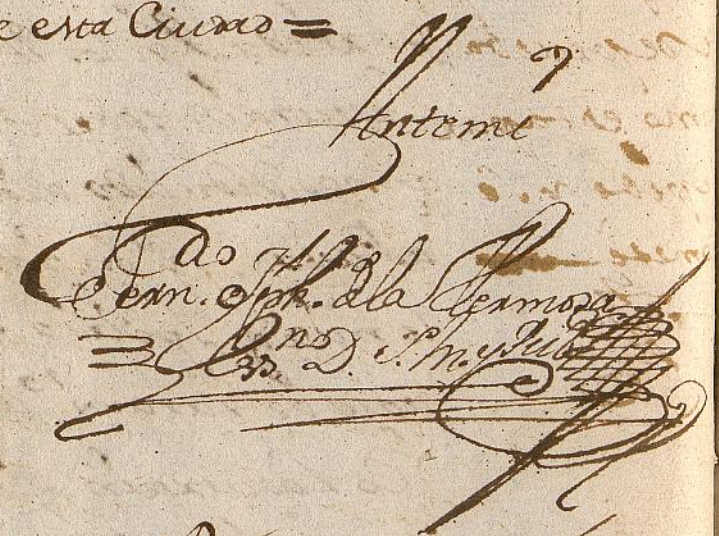 e esta Ciudad =
Antemi
Fern.do Jph. de la Hermosa
Es.no D. S. M. y Puc.o